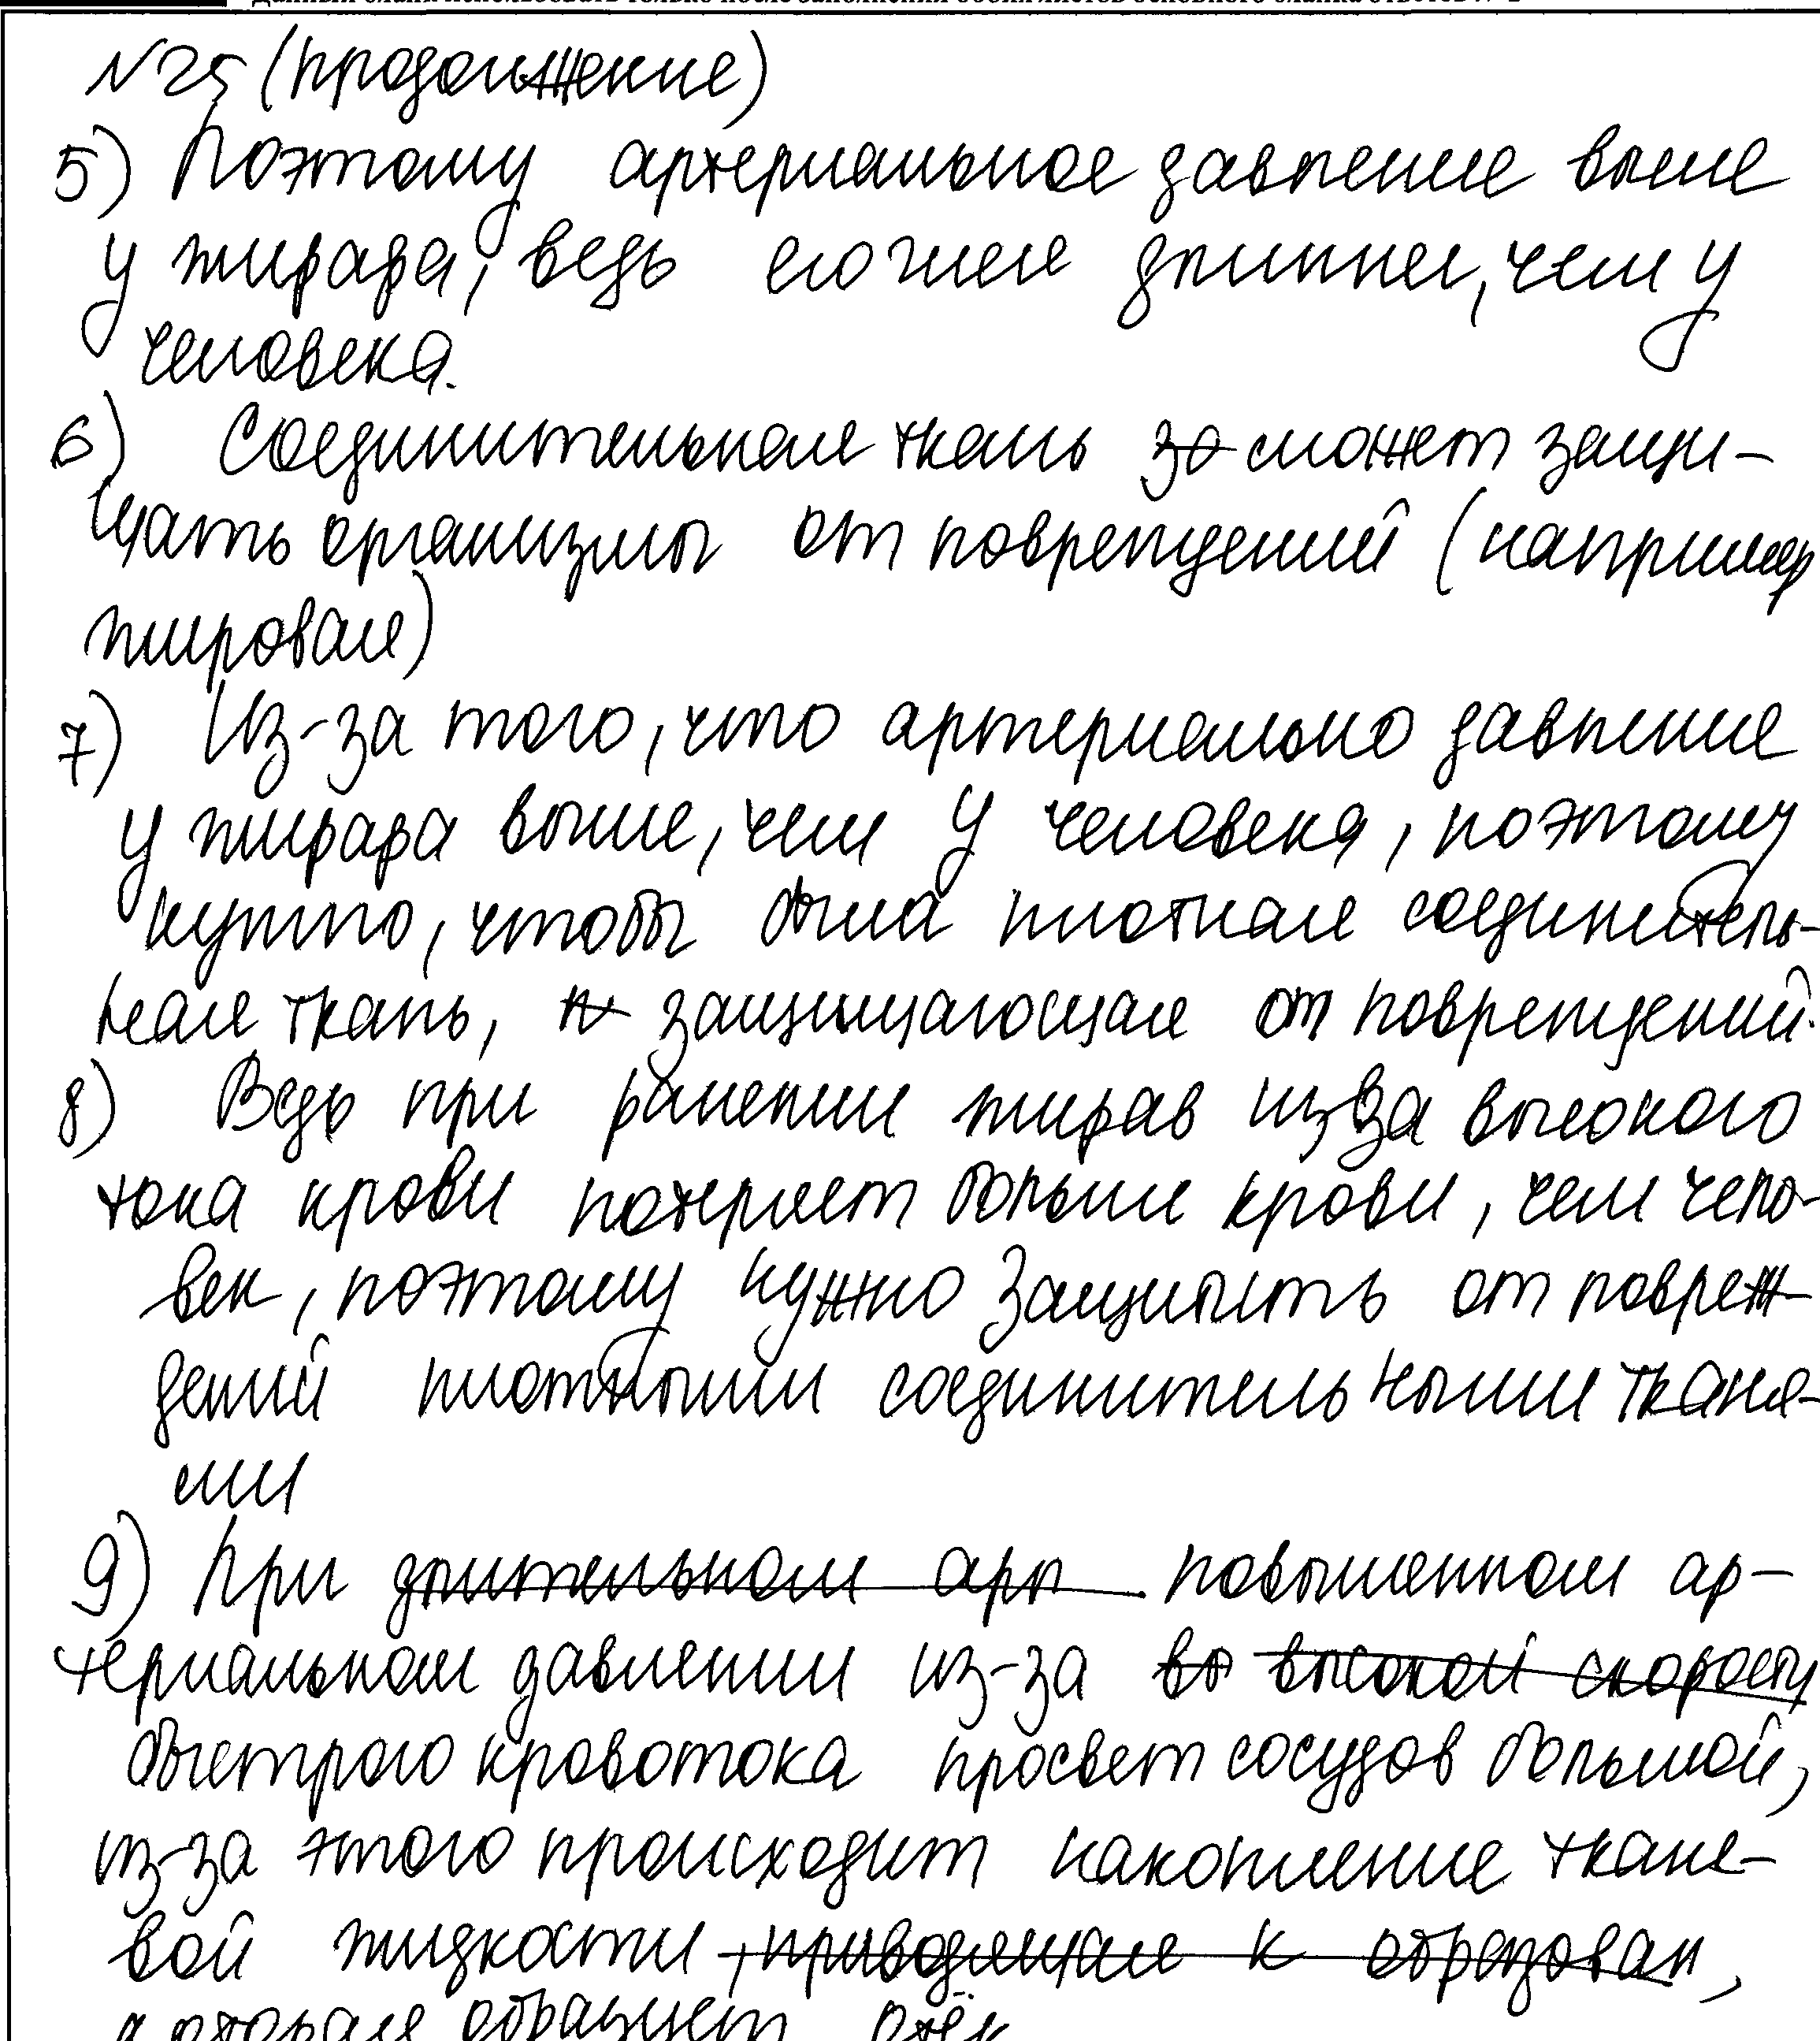 №25 (продолжение)
5) Поэтому артериальное давление выше
у жирафа, ведь его шея длиннее, чем у
человека.
6) Соединительная ткань за может защи-
щать организмы от повреждений (например
жировая)
7) Из-за того, что артериально давление
у жирафа выше, чем у человека, поэтому
нужно, чтобы была плотная соединитель-
ная ткань, защищающая от повреждений.
8) Ведь при ранении жираф из-за высокого
тока крови потеряет больше крови, чем чело-
век, поэтому нужно защищать от повреж-
дений плотными соединительными тканя-
ми
9) При длительном арт повышенном ар-
териальном давлении из-за вы высокой скорости
быстрого кровотока просвет сосудов большой,
из-за этого происходит накопление ткане-
вой жидкости, приводящая к образован,
которая образует отёк